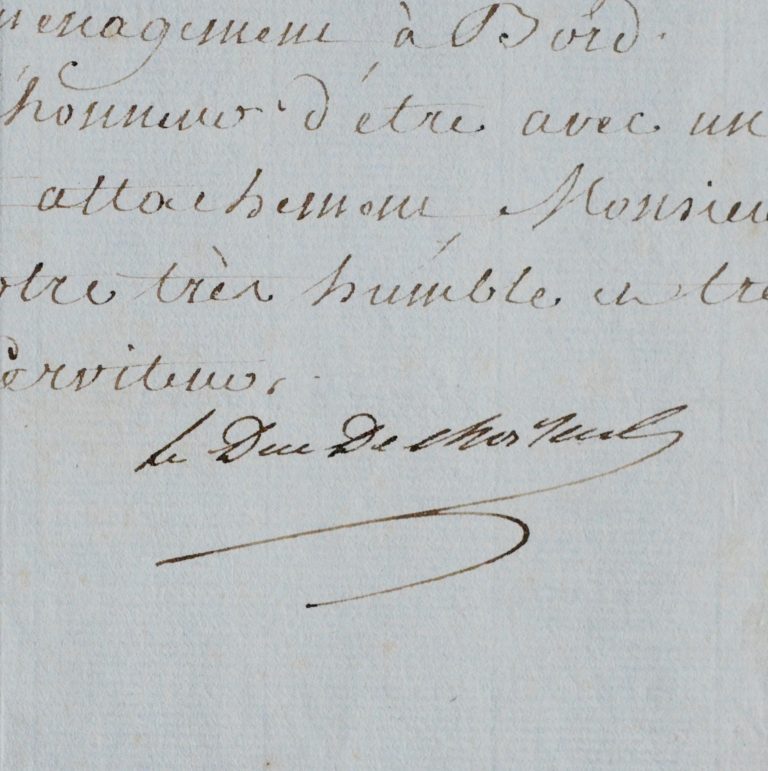 ménagement à Bord.
'honneur d'être avec un
attachement, Monsieu
otre très humble et tre
Serviteur,
le Duc De Choiseul